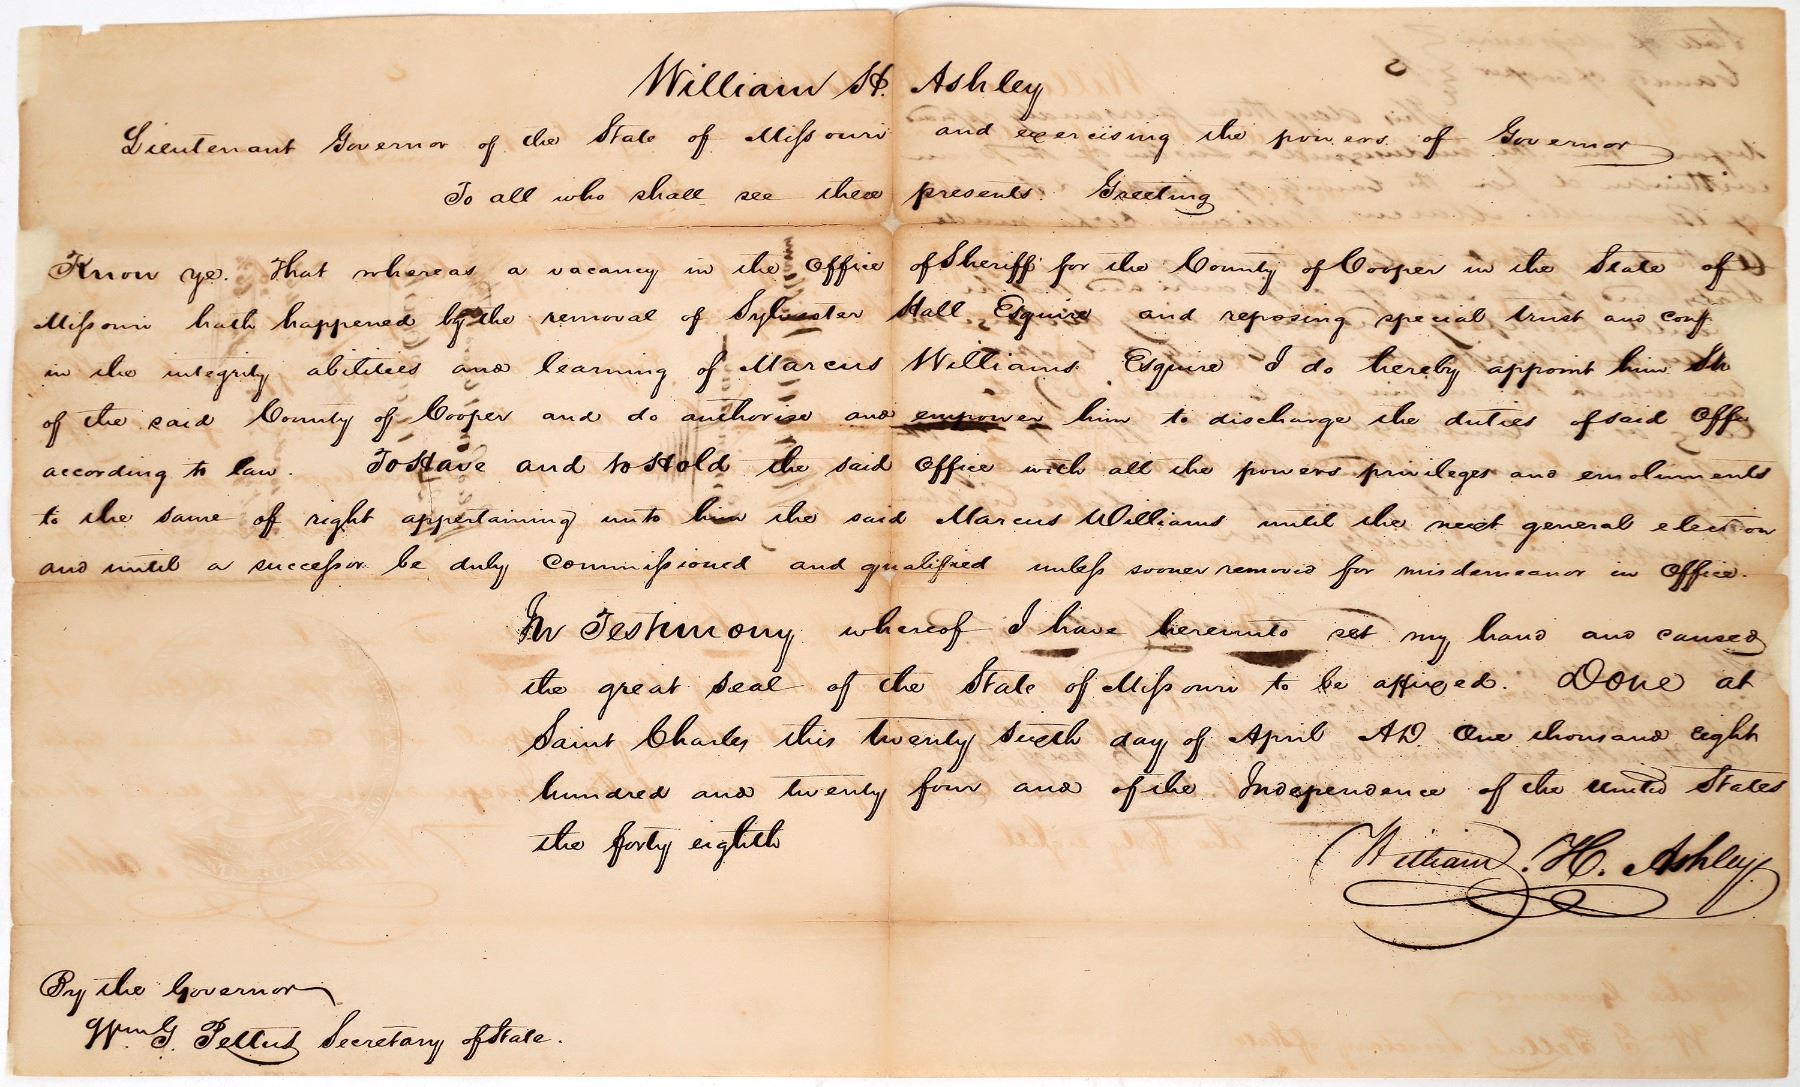 William H. Ashley
Lieutenant Governor of the State of Missouri and exercising the powers of Governor
To all who shall see these presents Greeting
Know ye. That whereas a vacancy in the Office of Sheriff for the County of Cooper in the State of
Missouri hath happened by the removal of Sylvester Hall Esquire and reposing special trust and conf
in the integrity abilities and learning of Marcus Williams Esquire I do hereby appoint him Sh
of the said County of Cooper and do authorise and empower him to discharge the duties of said Offi
according to law. To Have and to Hold the said Office with all the powers privileges and emoluments
to the same of right appertaining unto him the said Marcus Williams until the next general election
and until a successor be duly Commissioned and qualified unless sooner removed for misdemeanor in Office.
In Testimony whereof I have hereunto set my hand and caused
the great Seal of the State of Missouri to be affixed. Done at
Saint Charles this twenty sixth day of April AD. One thousand eight
hundred and twenty four and of the Independence of the United States
the forty eighth
William. H. Ashley
By the Governor
Wm G. Pettus Secretary of State.